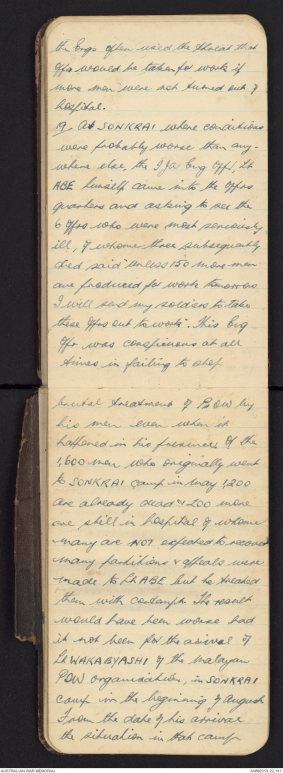 the Engs often used the threat that
Offrs would be taken for work if
more men were not turned out of
hospital.
19 At SONKRAI where conditions
were probably worse than any-
where else, the IJA Eng Offr, Lt
ABE himself came into the Offrs
quarters and asking to see the
6 Offrs who were most seriously
ill, of whom three subsequently
died said "Unless 150 more men
are produced for work tomorrow
I will send my soldiers to take
these Offrs out to work". This Eng
Offr was conspicuous at all
times in failing to stop
brutal treatment of POW by
his men even when it
happened in his presence. Of the
1,600 men who originally went
to SONKRAI camp in May 1200
are already dead & 200 more
are still in hospital of whom
many are NOT expected to recover
many partitions & appeals were
made to Lt ABE but he treated
them with contempt. The result
would have been worse had
it not been for the arrival of
Lt WAKABYASHI of the malayan
POW organisation, in SONKRAI
camp in the beginning of August
From the date of his arrival
the situation in that camp
AUSTRALIAN WAR MEMORIAL